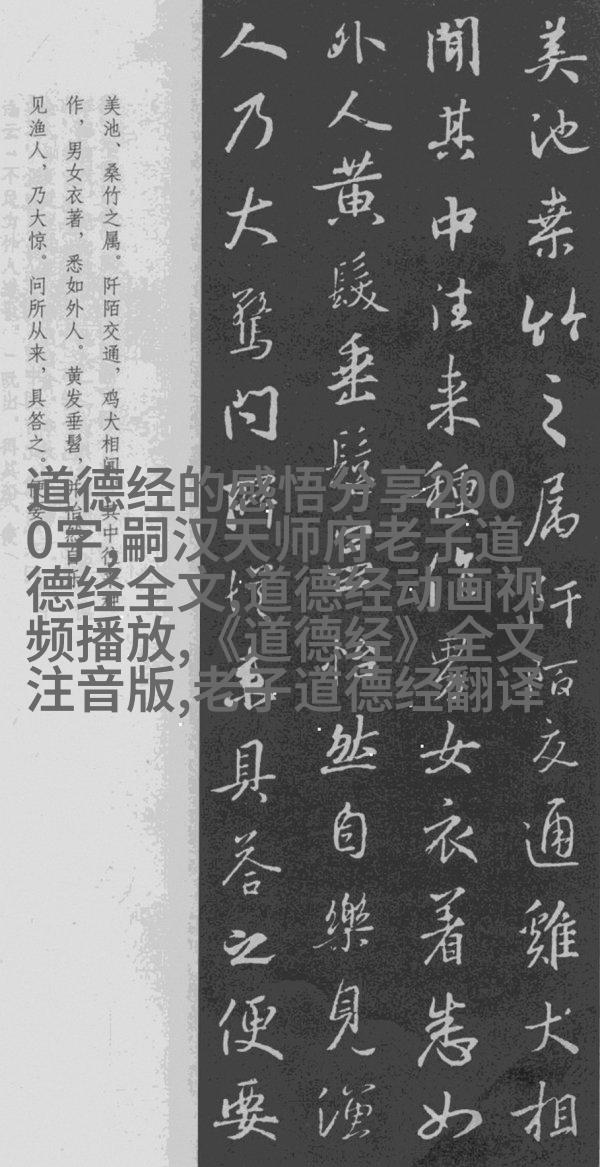 美池桒竹之属阡陌交通雞犬相
聞其中往来種作男女衣着悉如
外人黄髮垂髫並怡然自樂見漁
人乃大驚问所從来具答之便要
美池、桑竹之属。阡陌交通，鸡犬相闻。其中往来种
作，男女衣著，悉如外人。黄发垂髫，并怡然自乐
见渔人，乃大惊。问所从来，具答之。便要
道德经的感悟分享200
0字,嗣汉天师府老子道
德经全文,道德经动画视
频播放,《道德经》全文
注音版,老子道德经翻译